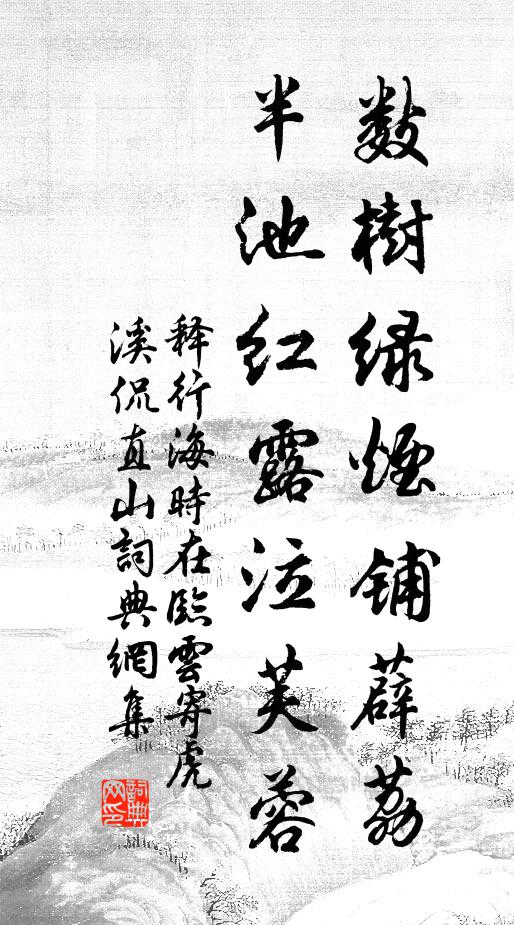 数樹绿煙铺薜荔
半池红露泣芙蓉
释行海時在臨雲寄虎
溪侃直山詞典網集
詞典网印